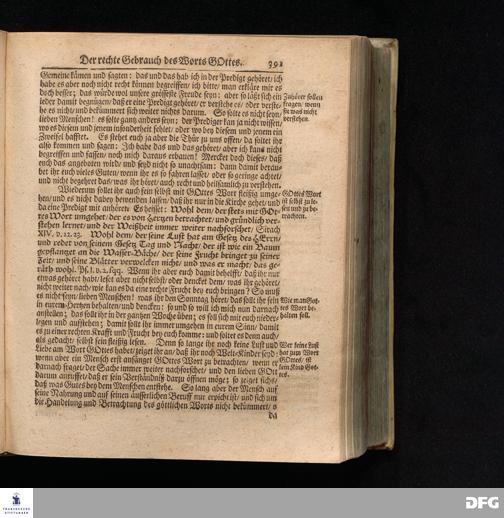 Der rechte Gebrauch des Worts GOttes. 391
Gemeine kämen und sagten: das und das hab ich in der Predigt gehöret/ ich
habe es aber noch nicht recht können begreiffen/ ich bitte/ man erkläre mir es
doch besser; das würde wol unsere grösseste Freude seyn: aber so läßt sich ein
jeder damit begnügen/ daß er eine Predigt gehöret/ er verstehe es/ oder verste-
he es nicht/ und bekümmert sich weiter nichts darum. So solte es nicht seyn/
lieben Menschen! es solte gantz anders seyn: der Prediger kan ja nicht wissen/
wo es diesem und jenem insonderheit fehlet/ oder wo bey diesem und jenem ein
Zweiffel hafftet. Es stehet euch ja aber die Thür zu uns offen/ da soltet ihr
also kommen und sagen: Ich habe das und das gehöret/ aber ich kans nicht
begreiffen und fassen/ noch mich daraus erbauen! Mercket doch dieses/ daß
euch das angeboten wird/ und seyd nicht so unachtsam: dann damit berau-
bet ihr euch vieles Guten/ wenn ihr es so fahren lasset/ oder so geringe achtet/
und nicht begehret das/ was ihr höret/ auch recht und heilsamlich zu verstehen.
Zuhörer sollen
fragen/ wenn
sie was nicht
verstehen.
Wiederum sollet ihr auch sein selbst mit GOttes Wort fleißig umge-
hen/ und es nicht dabey bewenden lassen/ daß ihr nur in die Kirche gehet/ und
da eine Predigt mit anhöret. Es heisset: Wohl dem/ der stets mit GOt-
tes Wort umgehet/ der es von Hertzen betrachtet/ und gründlich ver-
stehen lernet/ und der Weißheit immer weiter nachforschet/ Sirach
XIV. v. 22. 23. Wohl dem/ der seine Lust hat am Gesetz des HErrn/
und redet von seinem Gesetz Tag und Nacht/ der ist wie ein Baum
gepflantzet an die Wasser-Bäche/ der seine Frucht bringet zu seiner
Zeit/ und seine Blätter verwelcken nicht/ und was er macht/ das ge-
räth wohl. Ps. I. v. 2. sqq. Wenn ihr aber euch damit behelfft/ daß ihr nur
etwas gehöret habt/ leset aber nicht selbst/ oder dencket dem/ was ihr gehöret/
nicht weiter nach/ wie kan es da eine rechte Frucht bey euch bringen? So muß
es nicht seyn/ lieben Menschen! was ihr den Sonntag höret/ das sollt ihr fein
in eurem Hertzen behalten/ und dencken: so und so will ich mich nun darnach
anstellen; das sollt ihr in der gantzen Woche üben; es soll sich mit euch nieder-
legen und auffstehen; damit sollt ihr immer umgehen in eurem Sinn/ damit
es zu einer rechten Krafft und Frucht bey euch komme: und soltet es denn auch/
als gedacht/ selbst fein fleißig lesen. Denn so lange ihr noch keine Lust und
Liebe am Wort GOttes habet/ zeiget ihr an/ daß ihr noch Welt-Kinder seyd:
wenn aber ein Mensch erst anfänget GOttes Wort zu betrachten/ wenn er
darnach fraget/ der Sache immer weiter nachforschet/ und den lieben GOtt
darum anruffet/ daß er sein Verständniß dazu öffnen möge; so zeiget sichs/
daß was Gutes bey dem Menschen entstehe. So lang aber der Mensch auf
seine Nahrung und auf seinen äusserlichen Beruff nur erpicht ist/ und sich um
die Handelung und Betrachtung des göttlichen Worts nicht bekümmert/ so
da
GOttes Wort
ist selbst zu le-
sen und zu be-
trachten.
Wie man Got-
tes Wort be-
halten soll.
Wer keine Lust
hat zum Wort
GOttes/ ist
kein Kind Got-
tes.
FRANCKESCHE
STIFTUNGEN
DFG